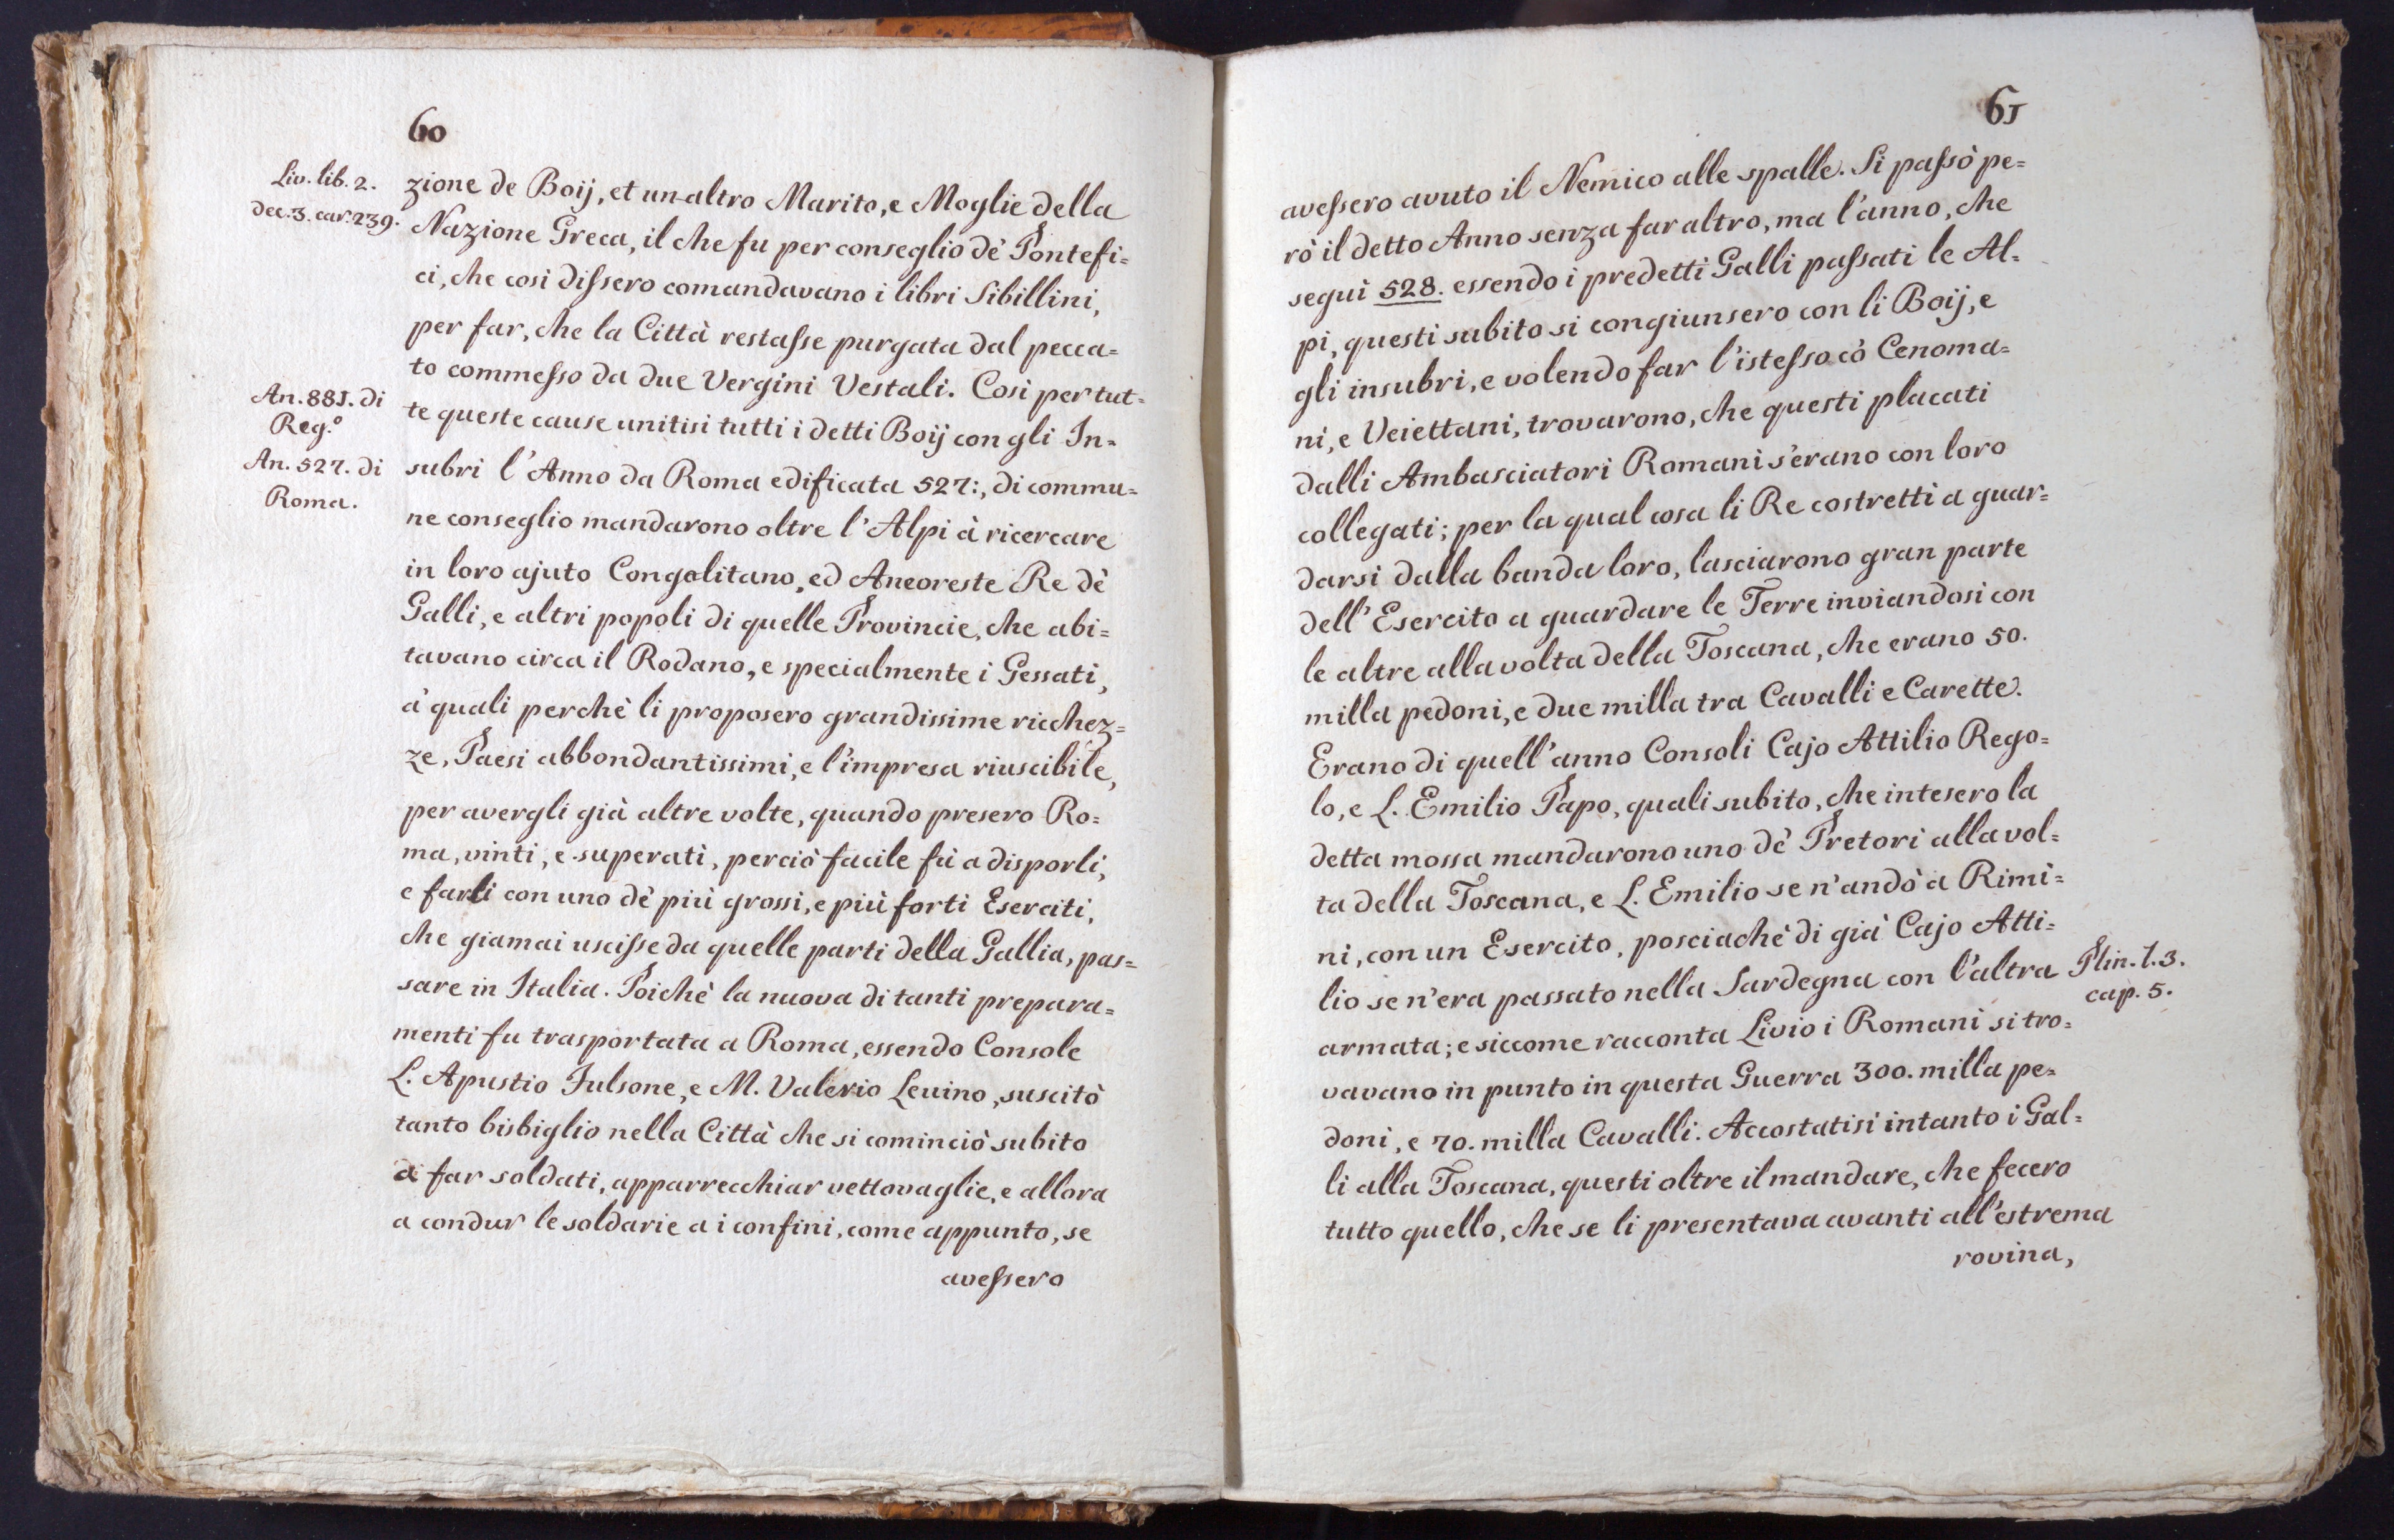 60
Liv. lib. 2.
dec. 3. car. 239.
zione de Boij, et un altro Marito, e Moglie della
Nazione Greca, il che fu per conseglio dè Pontefi=
ci, che così dissero comandavano i libri Sibillini,
per far, che la Città restasse purgata dal pecca=
to commesso da due Vergini Vestali. Così per tut=
An. 881. di
Reg.º
te queste cause unitisi tutti i detti Boij con gli In=
An. 527. di
Roma.
subri l'Anno da Roma edificata 527:, di commu=
ne conseglio mandarono oltre l'Alpi à ricercare
in loro ajuto Congolitano, ed Aneoreste Re dè
Galli, e altri popoli di quelle Provincie, che abi=
tavano circa il Rodano, e specialmente i Gessati,
à quali perchè li proposero grandissime ricchez=
ze, Paesi abbondantissimi, e l'impresa riuscibile,
per avergli già altre volte, quando presero Ro=
ma, vinti, e superati, perciò facile fù a disporli,
e farli con uno dè più grossi, e più forti Eserciti,
che giamai uscisse da quelle parti della Gallia, pas=
sare in Italia. Poichè la nuova di tanti prepara=
menti fu trasportata a Roma, essendo Console
L. Apustio Fulsone, e M. Valerio Levino, suscitò
tanto bisbiglio nella Città che si cominciò subito
à far soldati, apparrecchiar vettovaglie, e allora
a condur le soldarie a i confini, come appunto, se
avessero
61
avessero avuto il Nemico alle spalle. Si passò pe=
rò il detto Anno senza far altro, ma l'anno, che
seguì 528. essendo i predetti Galli passati le Al=
pi, questi subito si congiunsero con li Boij, e
gli insubri, e volendo far l'istesso cò Cenoma=
ni, e Veiettani, trovarono, che questi placati
dalli Ambasciatori Romani s'erano con loro
collegati; per la qual cosa li Re costretti a guar=
darsi dalla banda loro, lasciarono gran parte
dell'Esercito a guardare le Terre inviandosi con
le altre alla volta della Toscana, che erano 50.
milla pedoni, e due milla tra Cavalli e Carette.
Erano di quell'anno Consoli Cajo Attilio Rego=
lo, e L. Emilio Papo, quali subito, che intesero la
detta mossa mandarono uno dè Pretori alla vol=
ta della Toscana, e L. Emilio se n'andò a Rimi=
ni, con un Esercito, posciachè di già Cajo Atti=
lio se n'era passato nella Sardegna con l'altra
Plin. l. 3.
cap. 5.
armata; e siccome racconta Livio i Romani si tro=
vavano in punto in questa Guerra 300. milla pe=
doni, e 70. milla Cavalli. Accostatisi intanto i Gal=
li alla Toscana, questi oltre il mandare, che fecero
tutto quello, che se li presentava avanti all'estrema
rovina,